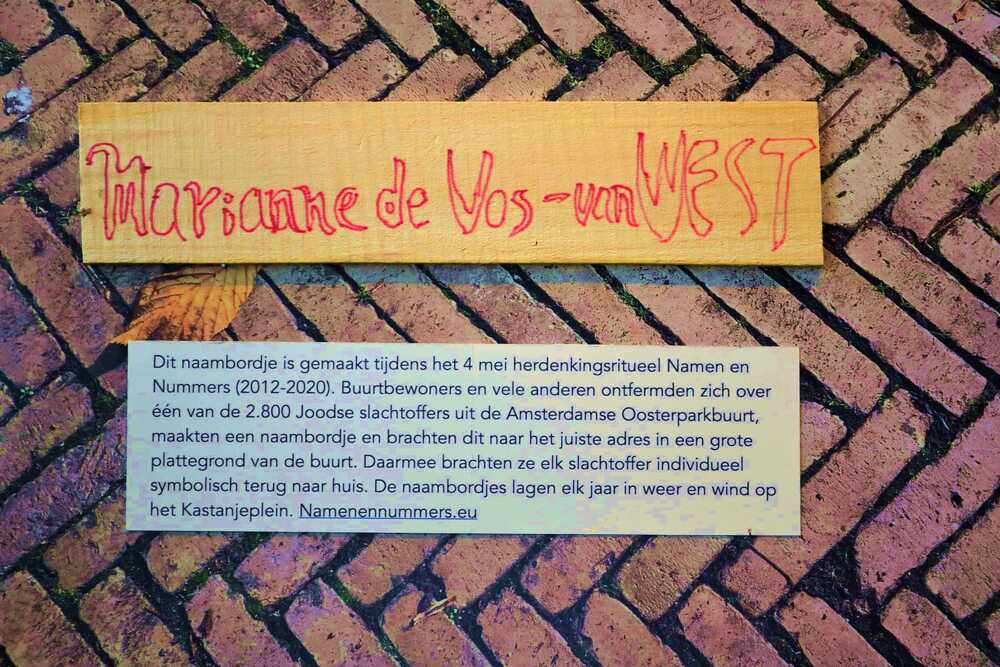 Marianne de Vos - van WEST
Dit naambordje is gemaakt tijdens het 4 mei herdenkingsritueel Namen en
Nummers (2012-2020). Buurtbewoners en vele anderen ontfermden zich over
één van de 2.800 Joodse slachtoffers uit de Amsterdamse Oosterparkbuurt,
maakten een naambordje en brachten dit naar het juiste adres in een grote
plattegrond van de buurt. Daarmee brachten ze elk slachtoffer individueel
symbolisch terug naar huis. De naambordjes lagen elk jaar in weer en wind op
het Kastanjeplein. Namenennummers.eu